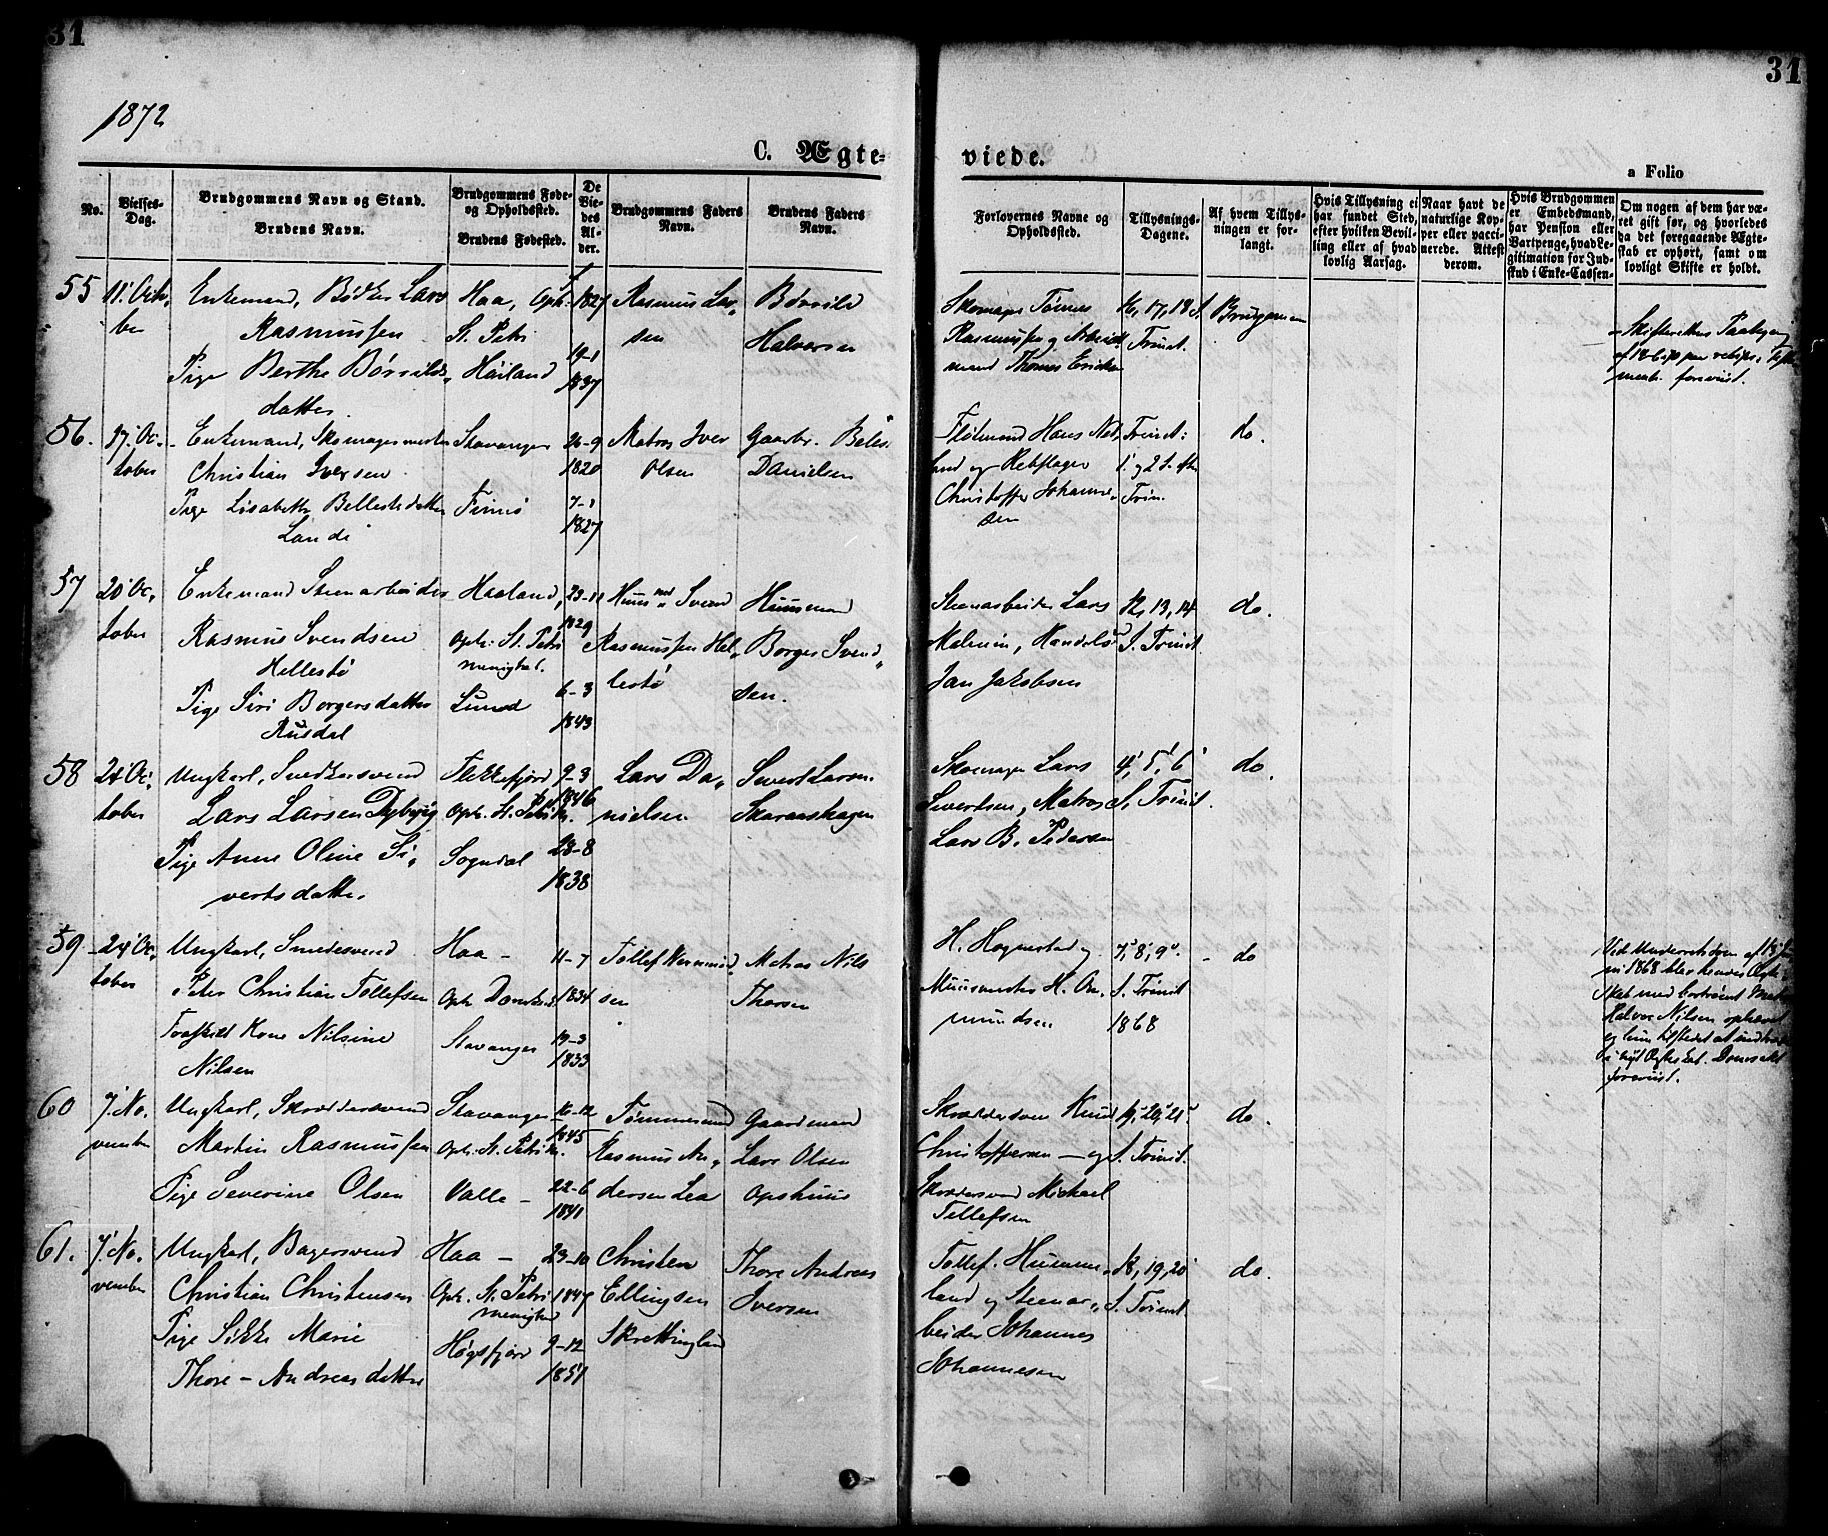 31
31
1872
C. Ægte-
viede.
a Folio
No.
Vielses-Dag.
Brudgommens Navn og Stand.
Brudens Navn.
Brudgommens Føde- og Opholdssted.
Brudens Fødested.
De Viedes Alder.
Brudgommens Faders Navn.
Brudens Faders Navn.
Forlovernes Navne og Opholdssted.
Tillysnings-Dagene.
Af hvem Tillysningen er forlangt.
Hvis Tillysning ei har fundet Sted, efter hvilken Bevilling eller af hvad lovlig Aarsag.
Naar havt de naturlige Kopper eller vaccinerede. Attest derom.
Hvis Brudgommen er Embedsmand, har Pension eller Vartpenge, hvad Legitimation for Indskud i Enke-Cassen
Om nogen af dem har været gift før, og hvorledes da det foregaaende Ægteskab er ophørt, samt om lovligt Skifte er holdt.
55 11' Octo-
ber
Enkemand, Bødker Lars
Rasmussen
Pige Berthe Børrilds-
datter
Haa, Oph.
St. Petri
Høiland
1827
19-1
1837
Rasmus Lar-
sen
Børrild
Halvorsen
Skomager Tønnes
Rasmussen og Arbeids-
mand Thomas Ericksen
16, 17, 18 S.
Trinit.
Brudgommen
Skifterettens
foreviist.
56. 17' Oc-
tober
Enkemand, Skomagermester
Christian Iversen
Pige Lisabeth Bellestdatter
Lande
Stavanger
Finnø
26-9
1820
7-1
1827
Matros Iver
Olsen
Gaarbr. Belest
Danielsen
Fløtmand Hans Net-
land og Rebslager
Christoffer Johanne-
sen
Trinit:
1' og 2 S. efter
Trin.
do.
57 20' Oc-
tober
Enkemand Stenarbeider
Rasmus Svendsen
Hellestø
Pige Siri Borgersdatter
Rusdal
Haaland,
Oph: St. Petri
menighed.
Lund
23-11
1829
6-3
1843
Huusmd Svend
Rasmussen Hel-
lestø
Huusmand
Borger Svend-
sen.
Steenarbeider Lars
Malmin, Handelsd
Jan Jakobsen
12, 13, 14
S. Trinit
do.
58 24' Oc-
tober
Ungkarl, Snedkersvend
Lars Larsen Dybvig
Pige Anne Oline Si-
vertsdatter
Flekkefjord
Oph. St. Petri M.
Sogndal
9-3
1846
28-8
1838
Lars Da-
nielsen
Sivert Larsen
Skaraaskagen
Skomager Lars
Sivertsen, Matros
Lars B. Pedersen
4', 5', 6'
S. Trinit.
do.
59 24' Oc-
tober
Ungkarl, Smedesvend
Peter Christian Tollefsen
Fraskilt Kone Nilsine
Nilsen
Haa -
Oph. Domkirk
Stavanger
11-7
1834
19-3
1833
Tollef
sen
Matros Nils
Thorsen
H. Hognestad og
Muurmester H. Om-
mundsen
7', 8', 9'
S. Trinit
1868
do
1868 blev hendes Ægte-
skab med bortrømt Matros
Halvor Nilsen ophævet
og hun tilstedet at indtræde
i nyt Ægteskab. Domsakt
foreviist.
60 7' No-
vember
Ungkarl, Skræddersvend
Martin Rasmussen
Pige Severine Olsen
Stavanger
Oph. St. Petri M.
Valle -
16-12
1845
22-6
1841
Tømmermand
Rasmus An-
dersen Lea
Gaardmand
Lars Olsen
Opshuus
Skræddersven Knud
Christoffersen - og
Skræddersvend Michael
Tellefsen
19', 20', 21'
S. Trinit.
do.
61. 7' No-
vember
Ungkarl, Bagersvend
Christian Christensen
Pige Sikke Marie
Thore-Andreasdatter
Haa -
Oph. St. Petri
menighed
Høgsfjord
23-10
1847
9-12
1851
Christen
Ellingsen
Skrettingland
Thore Andreas
Iversen
Tollef. Humme-
land og Steenar-
beider Johannes
Johannesen
18, 19, 20'
S. Trinit
do.